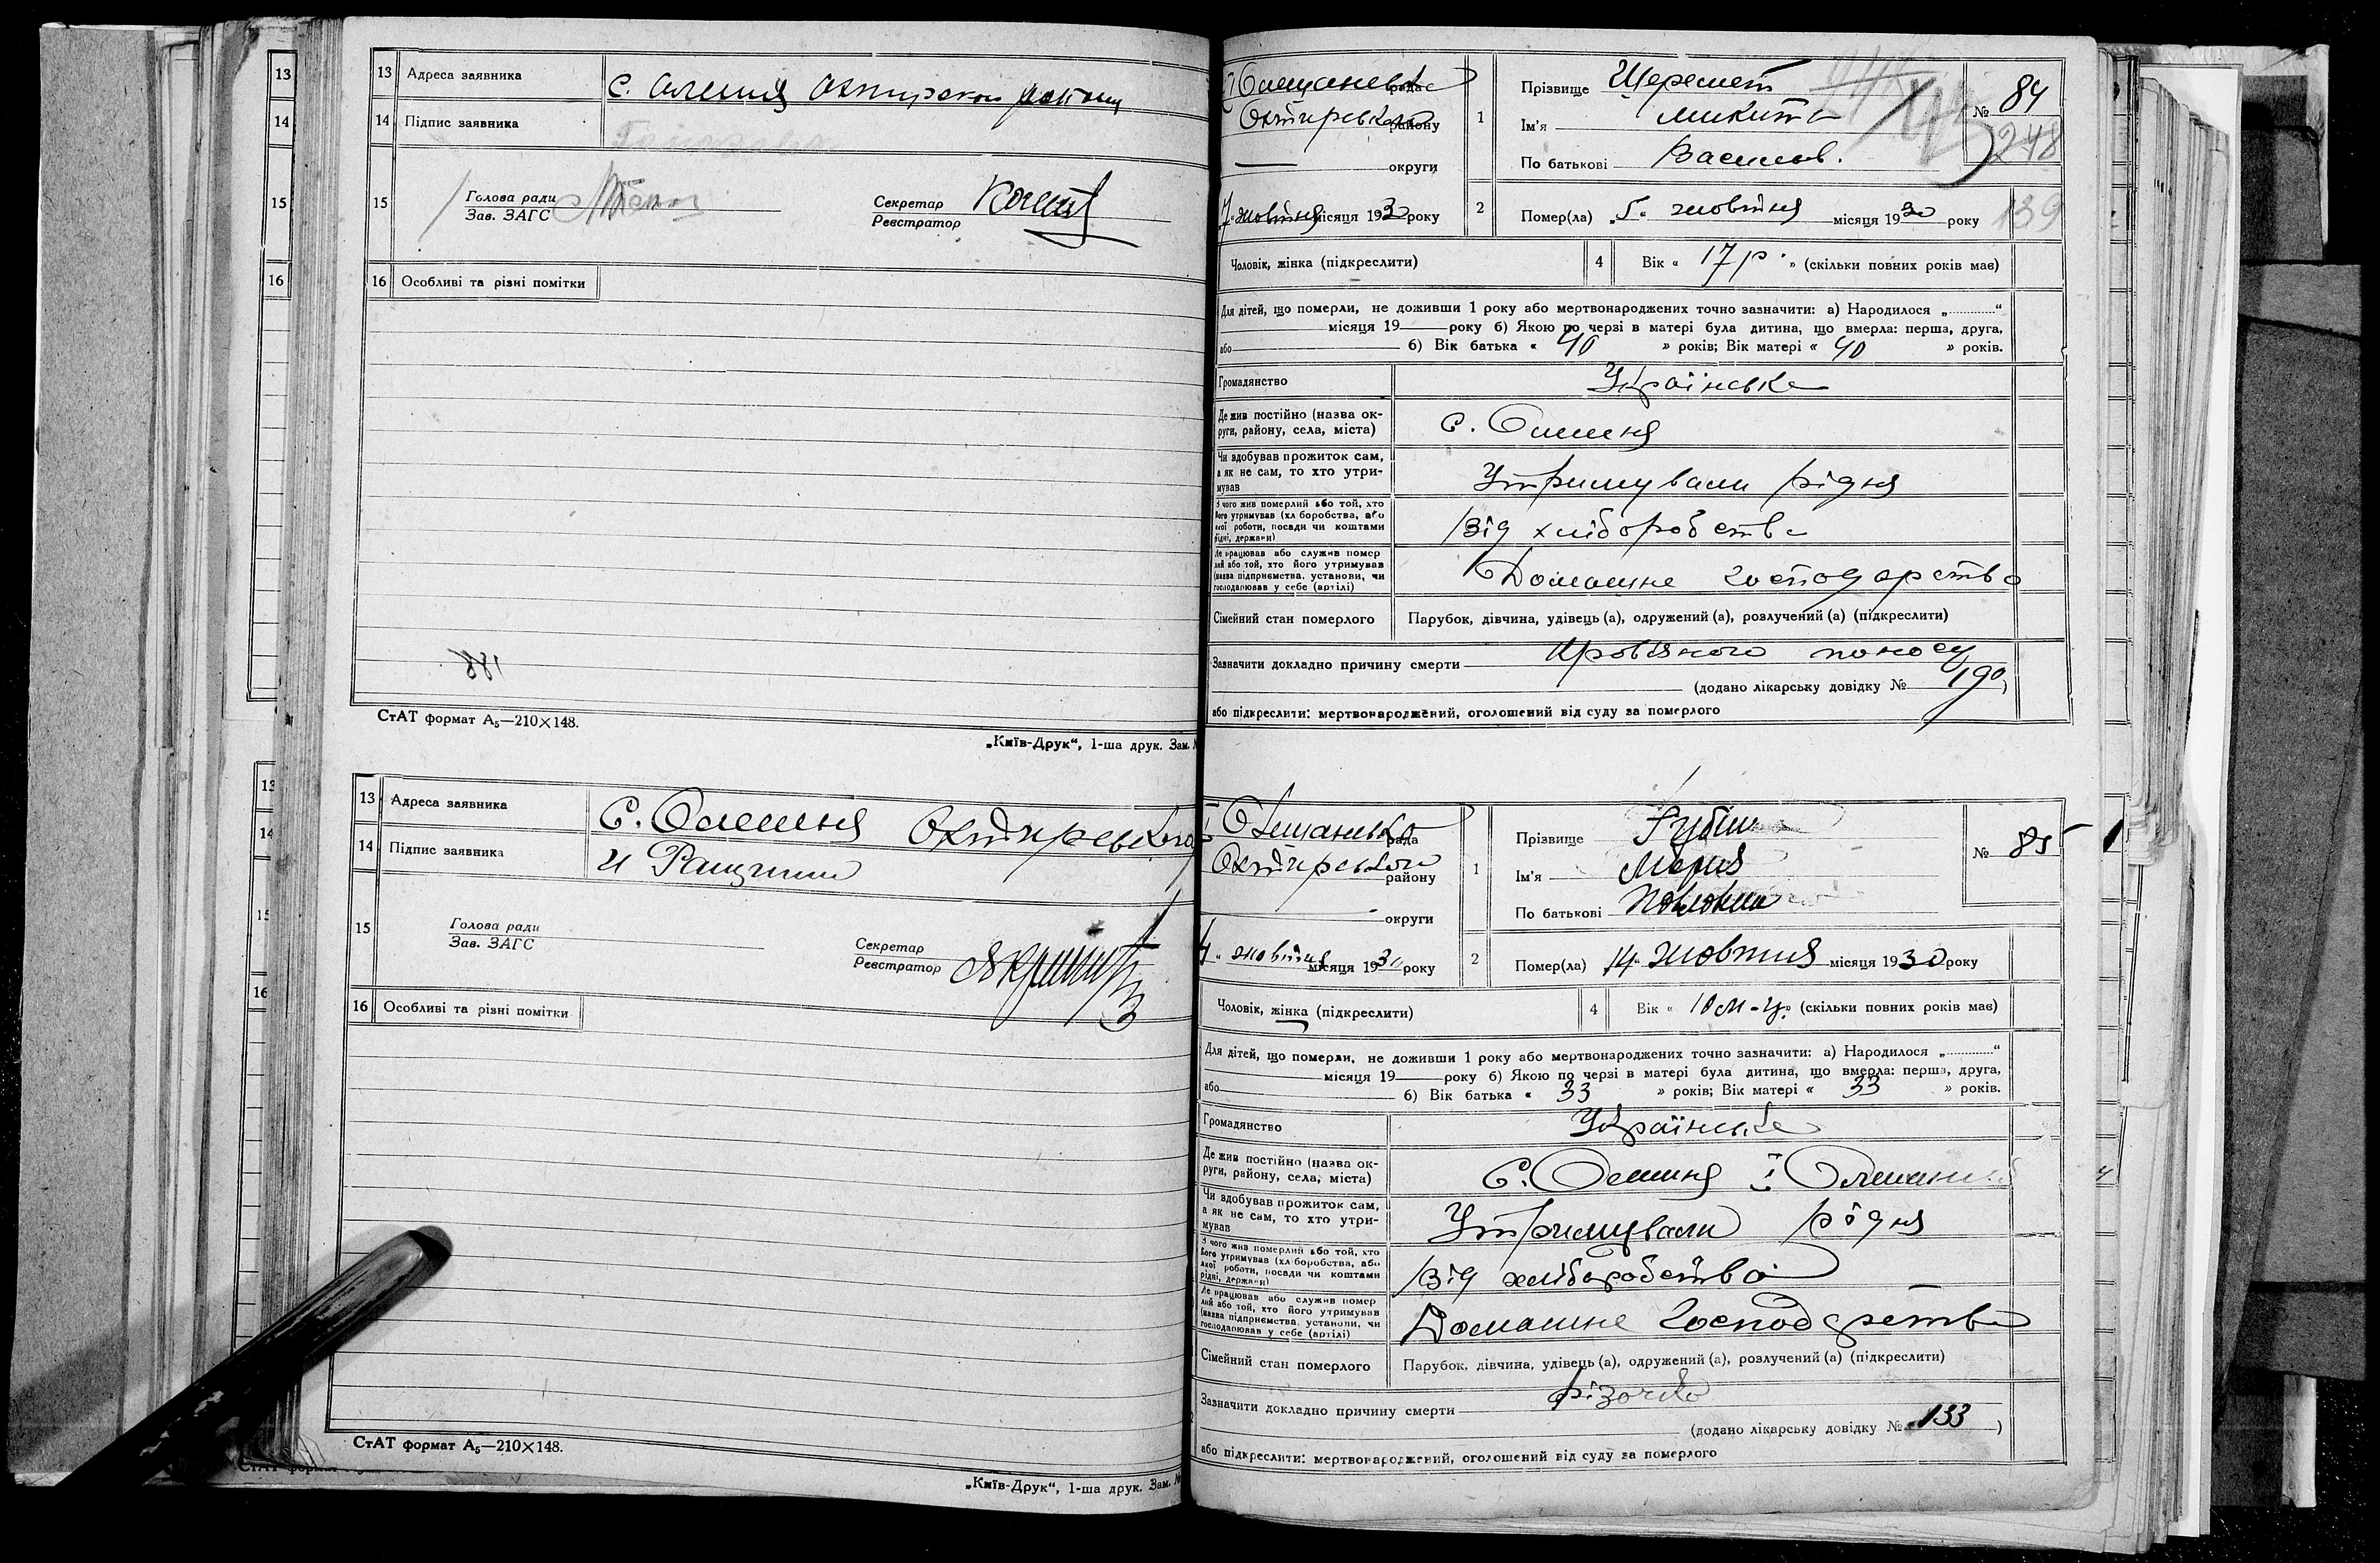 13
14
15
16
13 Адреса заявника с. Олешня Охтирского району
14 Підпис заявника
15 Голова ради
Зав. ЗАГС
Секретар
Реєстратор
16 Особливі та різні помітки
188
СтАТ формат А₅—210×148.
„Київ-Друк“, 1-ша друк. Зам.
13
14
15
16
13 Адреса заявника С. Олешня Охтирського
14 Підпис заявника
15 Голова ради
Зав. ЗАГС
Секретар
Реєстратор
16 Особливі та різні помітки
СтАТ формат А₅—210×148.
„Київ-Друк“, 1-ша друк. Зам. №
рада
Охтирської району
округи
1 Прізвище Шеремет
Ім'я Микита
По батькові Васильов.
№ 84
248
7 жовтня місяця 1930 року
2 Помер(ла) „5“ жовтня місяця 1930 року
139
Чоловік, жінка (підкреслити)
4 Вік « 17 р. » (скільки повних років має)
Для дітей, що померли, не доживши 1 року або мертвонароджених точно зазначити: а) Народилося „ “
місяця 19 року б) Якою по черзі в матері була дитина, що вмерла: перша, друга,
або б) Вік батька « 40 » років; Вік матері « 40 » років.
Громадянство Українське
Де жив постійно (назва округи, району, села, міста) с. Олешня
Чи здобував прожиток сам, а як не сам, то хто утримував Утримували рідня
З чого жив померлий або той, хто його утримував (хліборобства, або якої роботи, посади чи коштами рідні, держави) Від хліборобства
Де працював або служив померлий або той, хто його утримував (назва підприємства, установи, чи господарював у себе (артілі) Домашне господарство
Сімейний стан померлого Парубок, дівчина, удівець (а), одружений (а), розлучений (а) (підкреслити)
Зазначити докладно причину смерти Кров'яного поносу
(додано лікарську довідку № 190)
або підкреслити: мертвонароджений, оголошений від суду за померлого
рада
Охтирської району
округи
1 Прізвище
Ім'я Марія
По батькові
№ 85
жовтня місяця 1930 року
2 Помер(ла) 14 жовтня місяця 1930 року
Чоловік, жінка (підкреслити)
4 Вік « 10 м-ц. » (скільки повних років має)
Для дітей, що померли, не доживши 1 року або мертвонароджених точно зазначити: а) Народилося „ “
місяця 19 року б) Якою по черзі в матері була дитина, що вмерла: перша, друга,
або б) Вік батька « 33 » років; Вік матері « 33 » років.
Громадянство Українське
Де жив постійно (назва округи, району, села, міста) С. Олешня
Чи здобував прожиток сам, а як не сам, то хто утримував Утримували рідня
З чого жив померлий або той, хто його утримував (хліборобства, або якої роботи, посади чи коштами рідні, держави) Від хліборобства
Де працював або служив померлий або той, хто його утримував (назва підприємства, установи, чи господарював у себе (артілі) Домашне Господарство
Сімейний стан померлого Парубок, дівчина, удівець (а), одружений (а), розлучений (а) (підкреслити)
Зазначити докладно причину смерти різачка
(додано лікарську довідку № 133)
або підкреслити: мертвонароджений, оголошений від суду за померлого